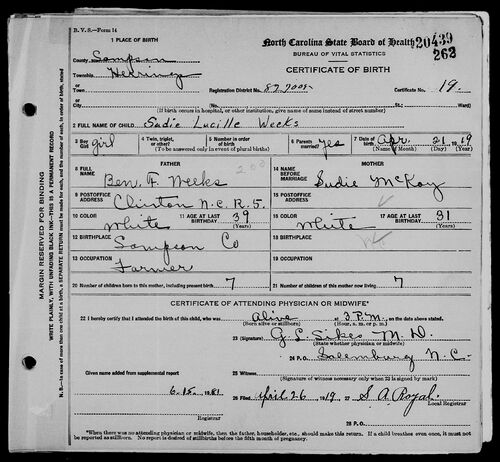 B. V. S.—Form 14
North Carolina State Board of Health 20439
BUREAU OF VITAL STATISTICS 262
CERTIFICATE OF BIRTH
1 PLACE OF BIRTH
County Sampson
Township Herring
Registration District No. 82-7008 Certificate No. 19.
or City (No. St.; Ward)
(If birth occurs in hospital, or other institution, give name of same instead of street number)
2 FULL NAME OF CHILD Sadie Lucille Weeks
3 Boy or Girl girl 4 Twin, triplet, or other? 5 Number in order of birth 6 Parents married? yes 7 Date of birth Apr. 21, 1919
(To be answered only in event of plural births) (Name of Month) (Day) (Year)
FATHER MOTHER
8 FULL NAME Ben. F. Weeks 14 NAME BEFORE MARRIAGE Sudie McKoy
9 POSTOFFICE ADDRESS Clinton N.C. R. 5. 15 POSTOFFICE ADDRESS
10 COLOR White 11 AGE AT LAST BIRTHDAY 39 (Years) 16 COLOR White 17 AGE AT LAST BIRTHDAY 31 (Years)
12 BIRTHPLACE Sampson Co 18 BIRTHPLACE
13 OCCUPATION Farmer 19 OCCUPATION
20 Number of children born to this mother, including present birth 7 21 Number of children of this mother now living 7
CERTIFICATE OF ATTENDING PHYSICIAN OR MIDWIFE*
22 I hereby certify that I attended the birth of this child, who was Alive at 3 P.M. on the date above stated.
(Born alive or stillborn) (Hour, a. m. or p. m.)
23 (Signature) G. L. Sikes M. D.
(State whether physician or midwife)
24 P. O. Salemburg N. C.
Given name added from supplemental report 25 Witness
(Signature of witness necessary only when 23 is signed by mark)
6-15, 1981 26 Filed April 26 1919 27 S. A. Royal.
Local Registrar
28 P. O.
*When there was no attending physician or midwife, then the father, householder, etc., should make this return. If a child breathes even once, it must not be reported as stillborn. No report is desired of stillbirths before the fifth month of pregnancy.
MARGIN RESERVED FOR BINDING
WRITE PLAINLY, WITH UNFADING BLACK INK—THIS IS A PERMANENT RECORD
N. B.—In case of more than one child at a birth, a SEPARATE RETURN must be made for each, and the number of each, in order of birth, stated.